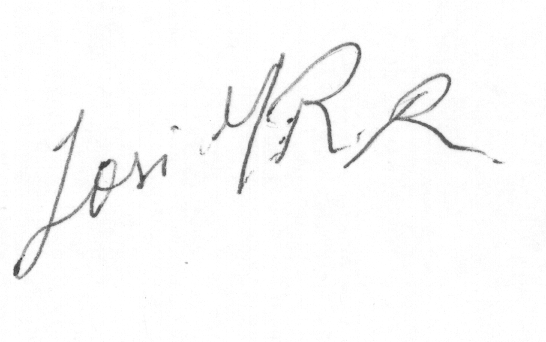 José M. R. R.